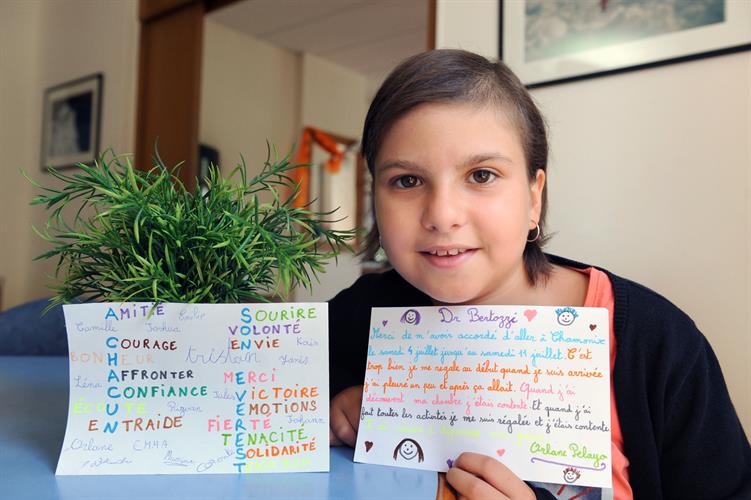 AMITIÉ
SOURIRE
Camille Joshua
VOLONTÉ
COURAGE
ENVIE
Kaïs
BONHEUR
tristan
Yanis
AFFRONTER
MERCI
Léna
CONFIANCE
Jules
VICTOIRE
ÉCOUTE
EMOTIONS
ENTRAIDE
FIERTÉ
Johann
TENACITÉ
Orlane
SOLIDARITÉ
A CHACUN SON EVEREST
Dr Bertozzi
Merci de m'avoir accordé d'aller à Chamonix
le samedi 4 juillet jusqu'au samedi 11 juillet. C'est
trop bien je me régale au début quand je suis arrivée
j'ai pleuré un peu et après ça allait. Quand j'ai
découvert ma chambre j'étais contente. Et quand j'ai
fait toutes les activités je me suis régalée et j'étais contente.
Orlane Pelayo